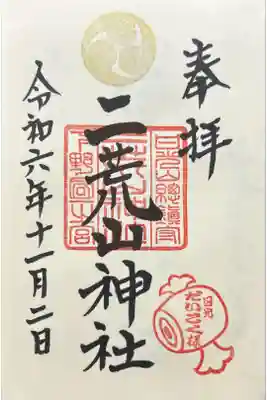 奉拝
二荒山神社
令和六年十一月二日
日光總鎮守
日光
だいこく様